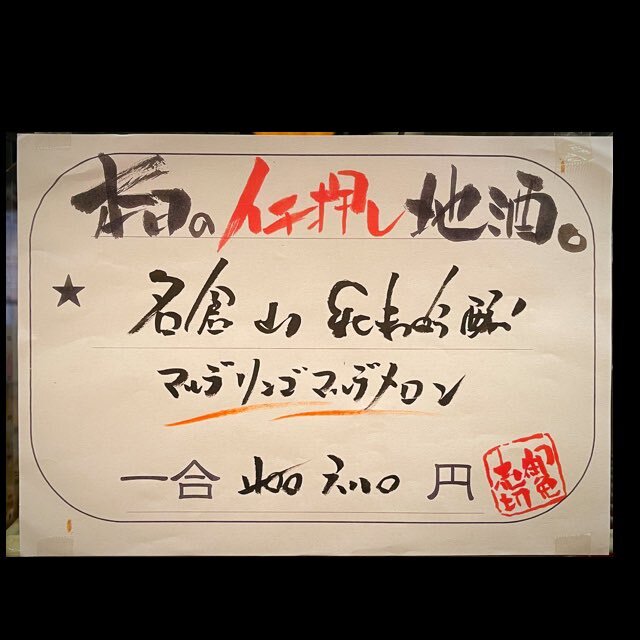 本日のイチ押し地酒。
★ 名倉山 純米吟醸
マルデリンゴマルデメロン
一合 円
御免
売切